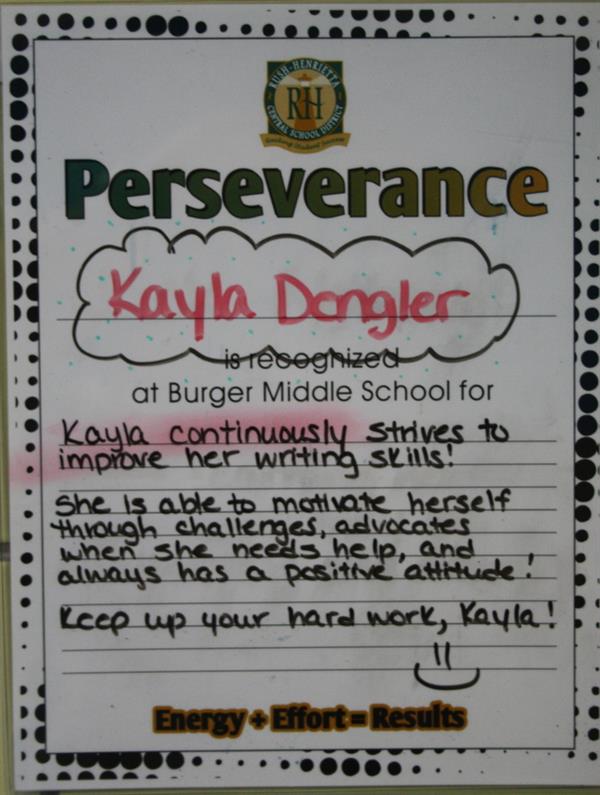 RUSH-HENRIETTA
RH
CENTRAL SCHOOL DISTRICT
Perseverance
Kayla Dengler
is recognized
at Burger Middle School for
Kayla continuously strives to
improve her writing skills!
She is able to motivate herself
through challenges, advocates
when she needs help, and
always has a positive attitude!
Keep up your hard work, Kayla!
Energy + Effort = Results